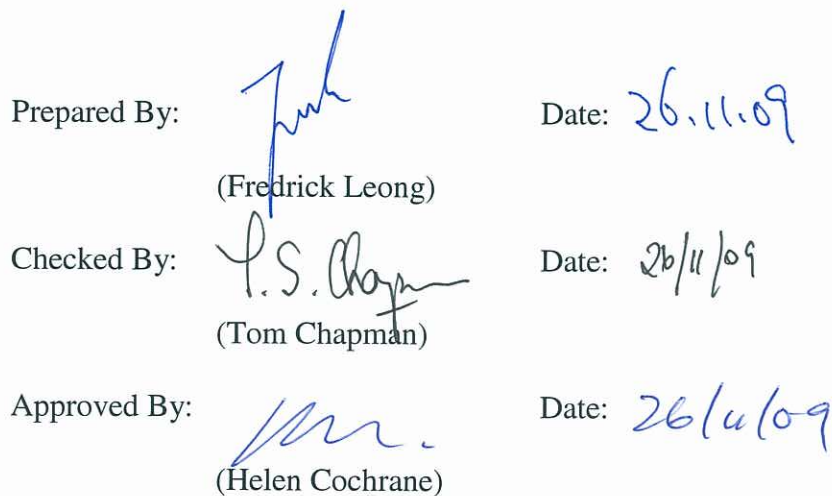 Prepared By: Date: 26.11.09
(Fredrick Leong)
Checked By: T.S. Chapman Date: 26/11/09
(Tom Chapman)
Approved By: Date: 26/11/09
(Helen Cochrane)